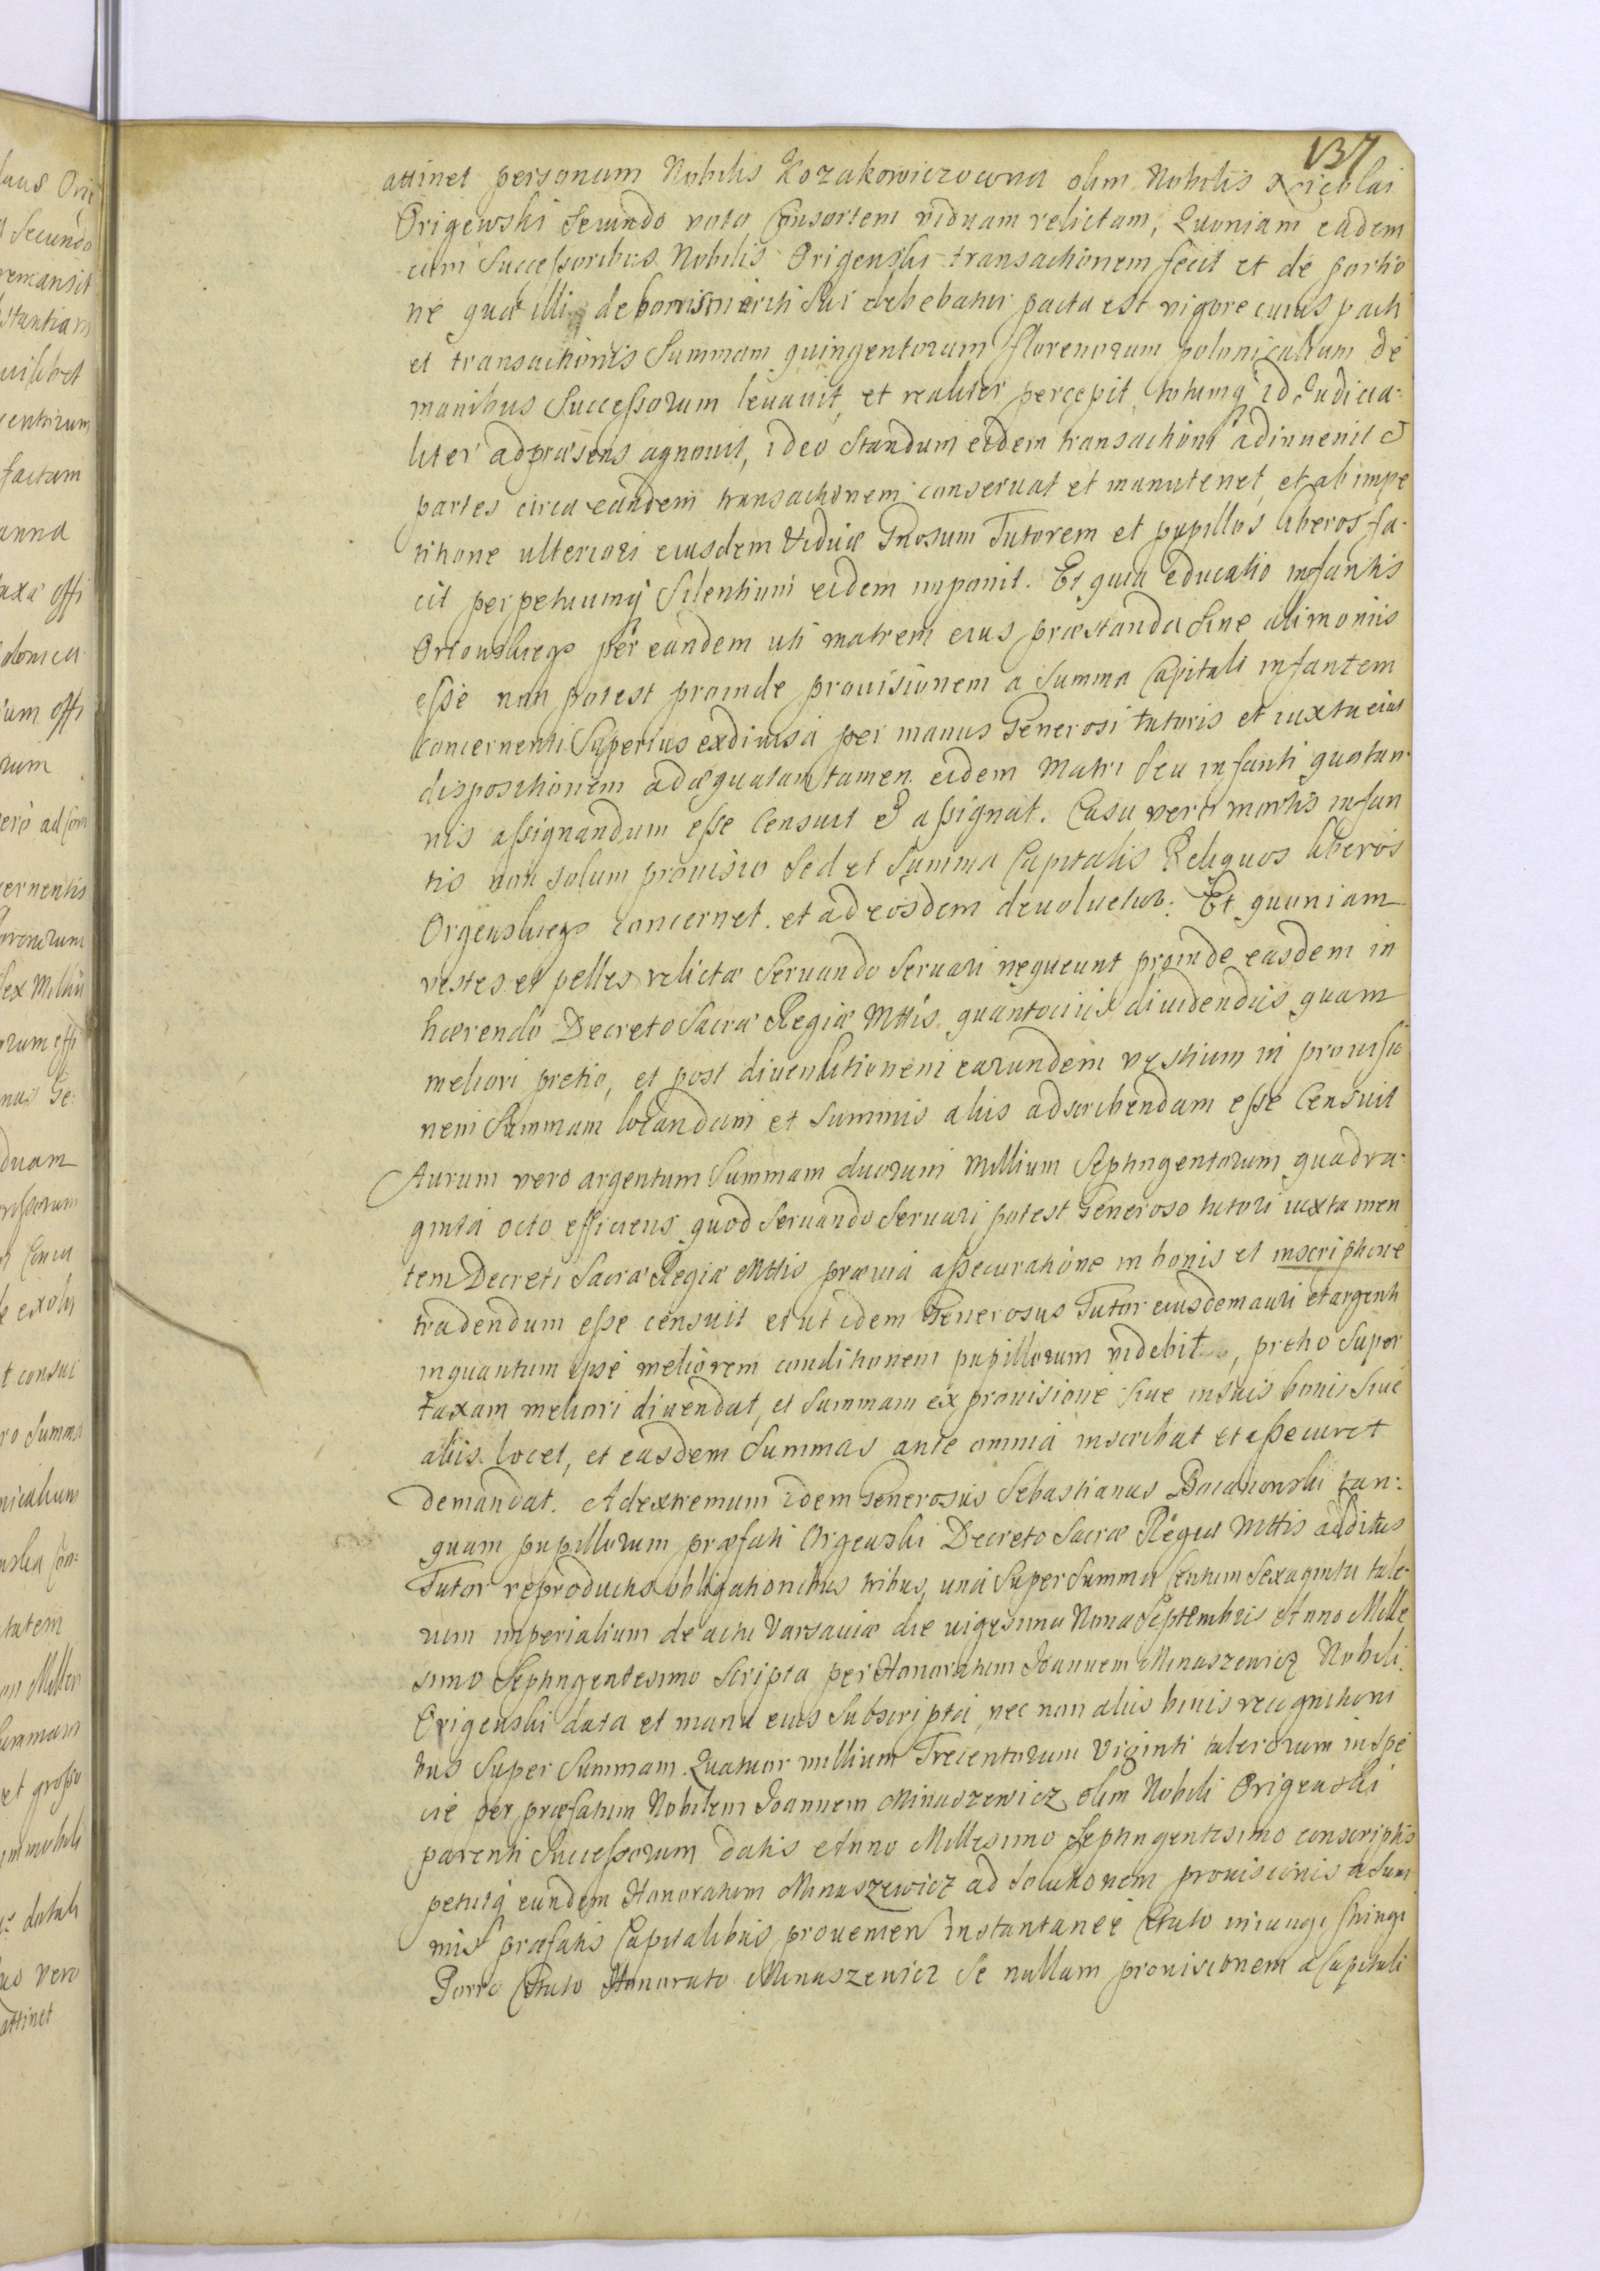 137
attinet personam Nobilis Kozakowiczowna olim Nobilis Nicolai
Origewski Secundo voto Consortem viduam relictam, Quoniam eadem
cum Successoribus Nobilis Origenski transactionem fecit et de portio
ne quæ illi de bonis mariti Sui debebatur pacta est vigore cuius pacti
et transactionis Summam quingentorum florenorum polonicalium de
manibus Successorum levavit, et realiter percepit, totumq id Judicia-
liter ad præsens agnovit, ideo Standum eidem transactioni adinuenit et
partes circa eandem transactionem conseruat et manutenet, et ab impe
titione ulteriori eiusdem Viduæ Gnosum Tutorem et pupillos liberos fa-
cit perpetuumq Silentium eidem imponit. Et quia educatio infantis
per eandem uti matrem eius præstanda Sine alimoniis
esse non potest proinde prouisionem a Summa Capitali infantem
concernenti Superius exdiuisa per manus Generosi tutoris et iuxta eius
dispositionem adæquatam tamen eidem Matri Seu infanti quotan-
nis assignandum esse Censuit & assignat. Casu vero mortis infan
tis non solum prouisio Sed et Summa Capitalis Reliquos liberos
concernet et ad eosdem deuoluetur. Et quoniam
vestes et pelles relictæ Seruando Seruari nequeunt proinde easdem in
hærendo Decreto Sacræ Regiæ Mttis quantocius diuidendas quam
meliori pretio, et post diuenditionem earundem vestium in prouisio
nem Summam locandam et Summis aliis adscribendam esse Censuit
Aurum vero argentum Summam duorum Millium Septingentorum quadra-
ginta octo efficiens quod Seruando Seruari potest Generoso tutori iuxta men
tem Decreti Sacræ Regiæ Mttis præuia assecuratione in bonis et inscriptione
tradendum esse censuit et ut idem Generosus Tutor eiusdem auri et argenti
inquantum ipse meliorem conditionem pupillorum videbit, pretio Super
taxam meliori diuendat, et Summam ex prouisione Siue in suis bonis Siue
aliis locet, et easdem Summas ante omnia inscribat et assecuret
demandat. Ad extremum idem Generosus Sebastianus tan-
quam pupillorum præfati Orgenski Decreto Sacræ Regiæ Mttis additus
Tutor reproductis obligationibus tribus, una Super Summa Centum Sexaginta tale-
rum imperialium de actu Varsaviæ die uigesima Nona Septembris Anno Mille
simo Septingentesimo Scripta per Honoratum Joannem Minaszewicz Nobili
Origenski data et manu eius Subscripta, nec non aliis binis recognitioni
bus Super Summam Quatuor millium Trecentorum Viginti talerorum in spe
cie per præfatum Nobilem Joannem Minaszewicz olim Nobili Origenski
parenti Successorum datis Anno Millesimo Septingentesimo conscriptis
petiitq eundem Honoratum Minaszewicz ad Solutionem prouisionis a Sum
mis præfatis Capitalibus prouenien instantanee Ctato iniungi
Porro Ctato Honorato Minaszewicz Se nullam prouisionem a Capitali